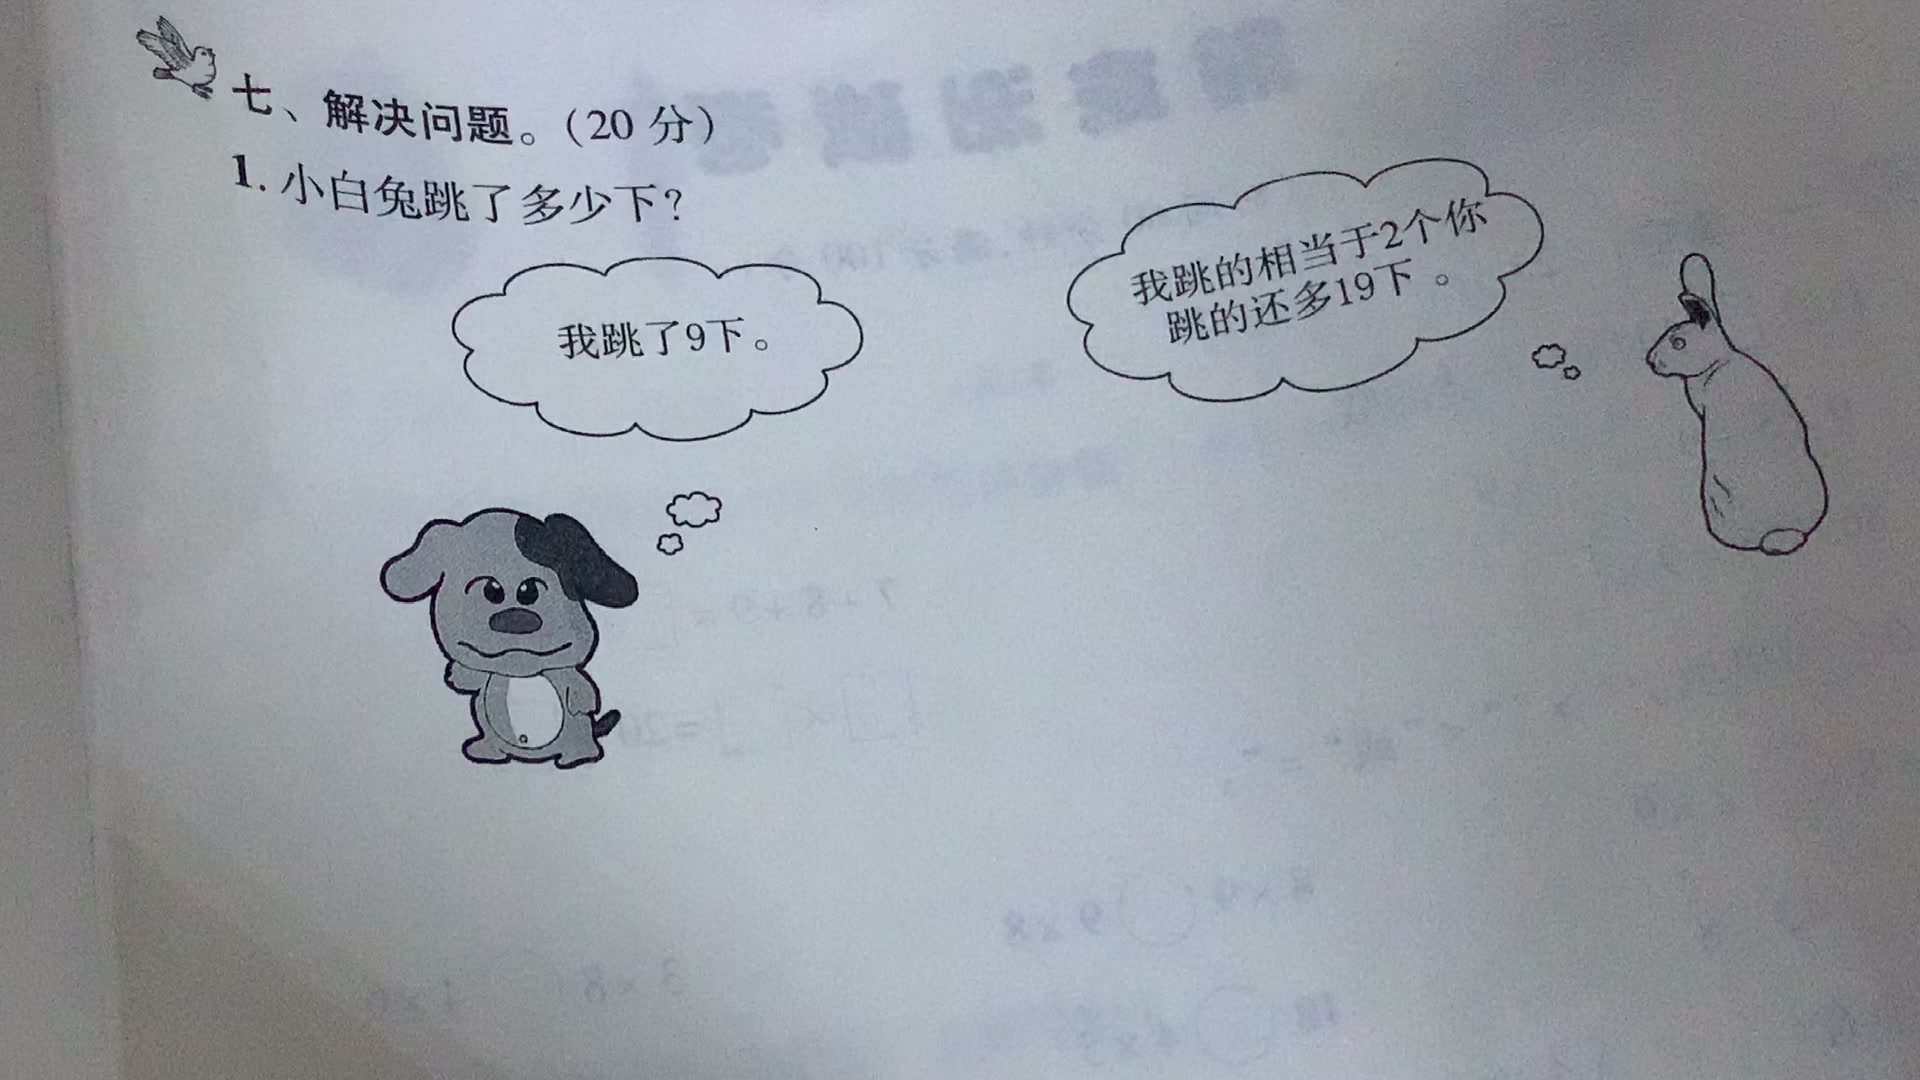 七、解决问题。(20 分)
1. 小白兔跳了多少下?
我跳了9下。
我跳的相当于2个你
跳的还多19下。